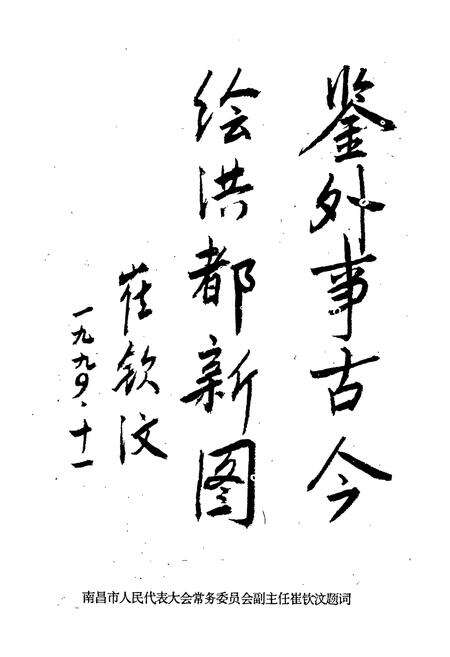 鉴外事古今
绘洪都新图
崔钦汶
一九九〇·十一
南昌市人民代表大会常务委员会副主任崔钦汶题词